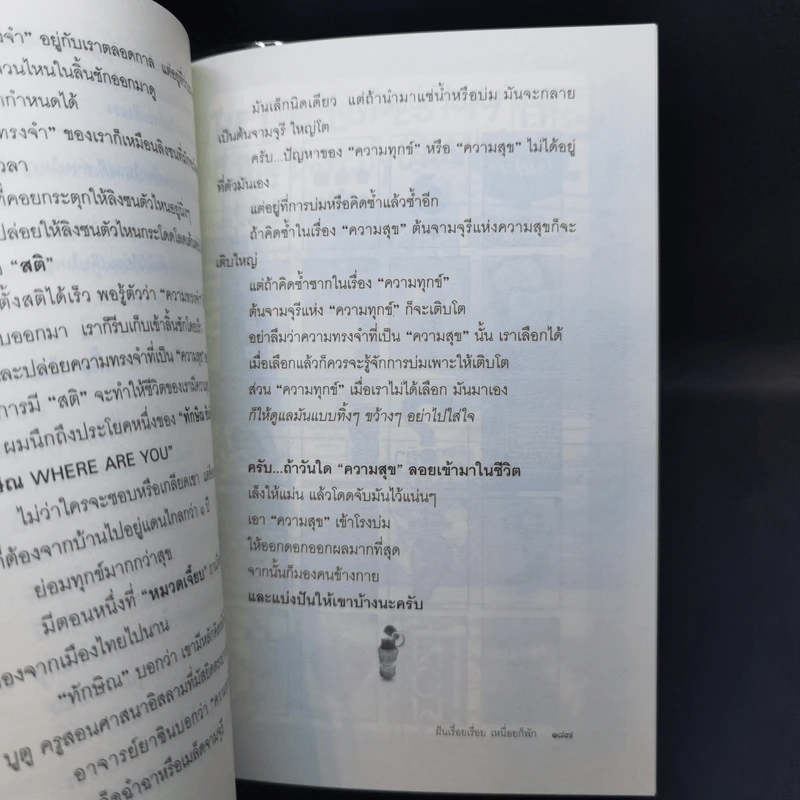 วจำ” อยู่กับเราตลอดกาล
วนไหนในลิ้นชักออกมาดู
ากำหนดได้
ทรงจำ” ของเราก็เหมือนลิงซน
วลา
ที่คอยกระตุกให้ลิงซนตัวไหนอยู่นิ่งๆ
ปล่อยให้ลิงซนตัวไหนกระโดดโลดเต้น
“สติ”
ตั้งสติได้เร็ว พอรู้ตัวว่า “ความทรงจำ
บออกมา เราก็รีบเก็บเข้าลิ้นชัก
ละปล่อยความทรงจำที่เป็น “ความสุข”
การมี “สติ” จะทำให้ชีวิตของเรามี
ผมนึกถึงประโยคหนึ่งของ “ทักษิณ
ษิณ WHERE ARE YOU”
ไม่ว่าใครจะชอบหรือเกลียดเขา
ที่ต้องจากบ้านไปอยู่แดนไกลกว่า ๑ ปี
ย่อมทุกข์มากกว่าสุข
มีตอนหนึ่งที่ “หมวดเจี๊ยบ”
องจากเมืองไทยไปนาน
“ทักษิณ” บอกว่า เขามีหลักคิด
นูตู ครูสอนศาสนาอิสลามที่
อาจารย์ยาซินบอกว่า
ล็ดฉำฉาหรือเมล็ดจามจุรี
มันเล็กนิดเดียว แต่ถ้านำมาแช่น้ำหรือบ่ม มันจะกลาย
เป็นต้นจามจุรี ใหญ่โต
ครับ...ปัญหาของ “ความทุกข์” หรือ “ความสุข” ไม่ได้อยู่
ที่ตัวมันเอง
แต่อยู่ที่การบ่มหรือคิดซ้ำแล้วซ้ำอีก
ถ้าคิดซ้ำในเรื่อง “ความสุข” ต้นจามจุรีแห่งความสุขก็จะ
เติบใหญ่
แต่ถ้าคิดซ้ำซากในเรื่อง “ความทุกข์”
ต้นจามจุรีแห่ง “ความทุกข์” ก็จะเติบโต
อย่าลืมว่าความทรงจำที่เป็น “ความสุข” นั้น เราเลือกได้
เมื่อเลือกแล้วก็ควรจะรู้จักการบ่มเพาะให้เติบโต
ส่วน “ความทุกข์” เมื่อเราไม่ได้เลือก มันมาเอง
ก็ให้ดูแลมันแบบทิ้งๆ ขว้างๆ อย่าไปใส่ใจ
ครับ...ถ้าวันใด “ความสุข” ลอยเข้ามาในชีวิต
เล็งให้แม่น แล้วโดดจับมันไว้แน่นๆ
เอา “ความสุข” เข้าโรงบ่ม
ให้ออกดอกออกผลมากที่สุด
จากนั้นก็มองคนข้างกาย
และแบ่งปันให้เขาบ้างนะครับ
ฝันเรื่อยเรื่อย เหนื่อยก็พัก ๑๘๗